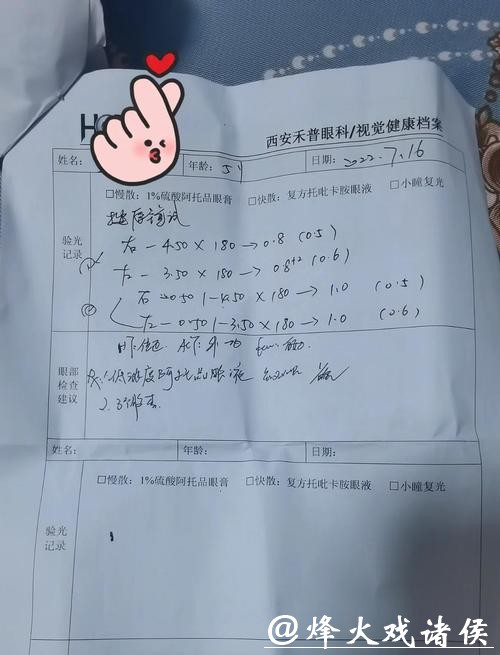 H
西安禾普眼科/视觉健康档案
姓名： 年龄：5岁 日期：2022.7.16
□慢散：1%硫酸阿托品眼膏 □快散：复方托吡卡胺眼液 □小瞳复光
验光记录
右 -4.50×180→0.8 (0.5)
左 -3.50×180→0.8+2 (0.6)
② 右-0.50/-4.50×180→1.0 (0.5)
左-0.50/-3.50×180→1.0 (0.6)
眼部检查建议
1.低浓度阿托品眼液
2.3个月
姓名： 年龄： 日期：
□慢散：1%硫酸阿托品眼膏 □快散：复方托吡卡胺眼液 □小瞳复光
验光记录
@烽火戏诸侯